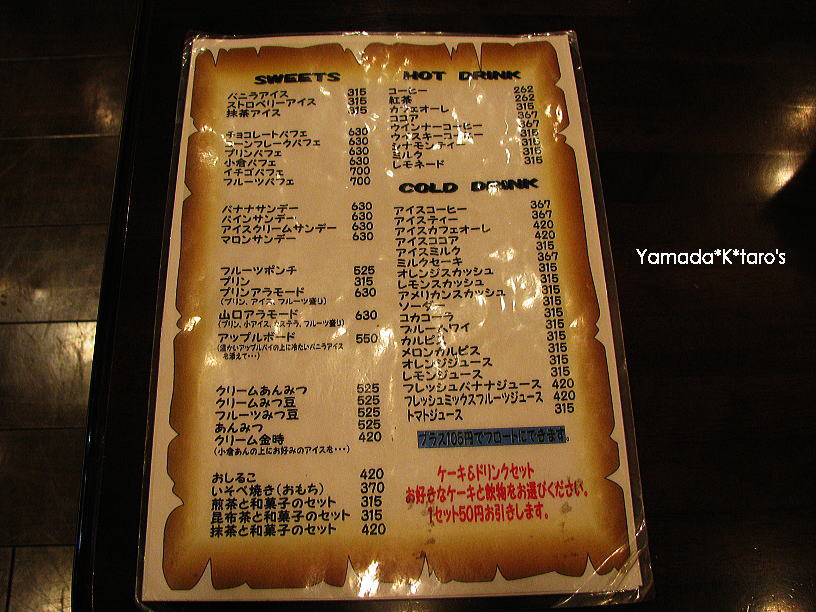 SWEETS
バニラアイス 315
ストロベリーアイス 315
抹茶アイス 315
チョコレートパフェ 630
コーンフレークパフェ 630
プリンパフェ 630
小倉パフェ 630
イチゴパフェ 700
フルーツパフェ 700
バナナサンデー 630
パインサンデー 630
アイスクリームサンデー 630
マロンサンデー 630
フルーツポンチ 525
プリン 315
プリンアラモード 630
(プリン、アイス、フルーツ盛り)
山口アラモード 630
(プリン、小アイス、カステラ、フルーツ盛り)
アップルボード 550
(温かいアップルパイの上に冷たいバニラアイス
を添えて・・・)
クリームあんみつ 525
クリームみつ豆 525
フルーツみつ豆 525
あんみつ 525
クリーム金時 420
(小倉あんの上にお好みのアイスを・・・)
おしるこ 420
いそべ焼き(おもち) 370
煎茶と和菓子のセット 315
昆布茶と和菓子のセット 315
抹茶と和菓子のセット 420
HOT DRINK
コーヒー 262
紅茶 262
カフェオーレ 315
ココア 367
ウインナーコーヒー 367
ウイスキーコーヒー 315
シナモンティー 315
ミルク 315
レモネード 315
COLD DRINK
アイスコーヒー 367
アイスティー 367
アイスカフェオーレ 420
アイスココア 420
アイスミルク 315
ミルクセーキ 367
オレンジスカッシュ 315
レモンスカッシュ 315
アメリカンスカッシュ 315
ソーダー 315
コカコーラ 315
ブルームワイ 315
カルピス 315
メロンカルピス 315
オレンジジュース 315
レモンジュース 315
フレッシュバナナジュース 420
フレッシュミックスフルーツジュース 420
トマトジュース 315
プラス105円でフロートにできます。
ケーキ&ドリンクセット
お好きなケーキと飲物をお選びください。
1セット50円お引きします。
Yamada*K*taro's